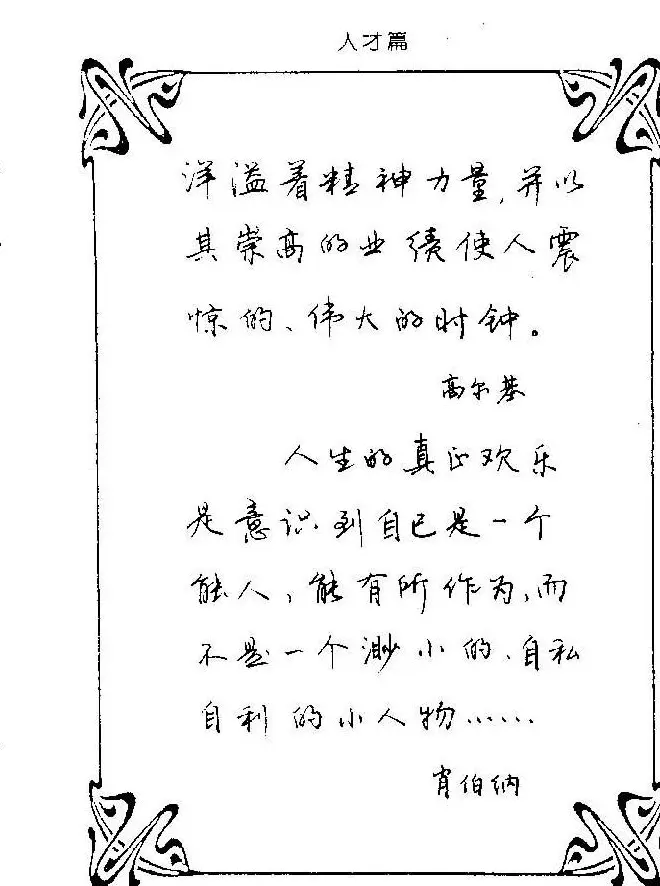 人才篇
洋溢着精神力量,并以
其崇高的业绩使人震
惊的、伟大的时钟。
高尔基
人生的真正欢乐
是意识到自己是一个
能人,能有所作为,而
不是一个渺小的、自私
自利的小人物……
肖伯纳